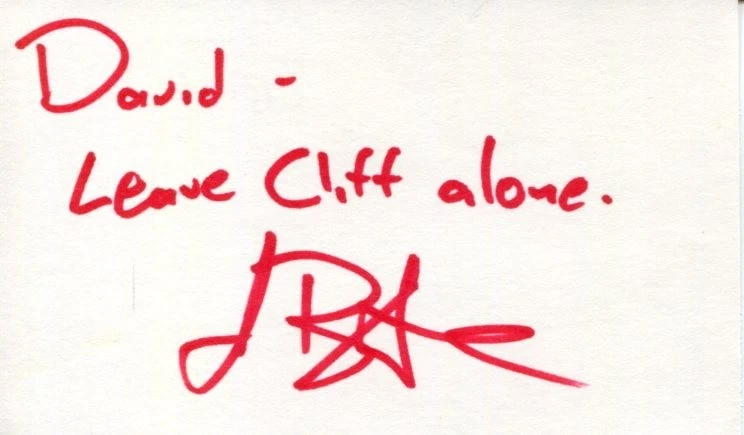 David -
Leave Cliff alone.